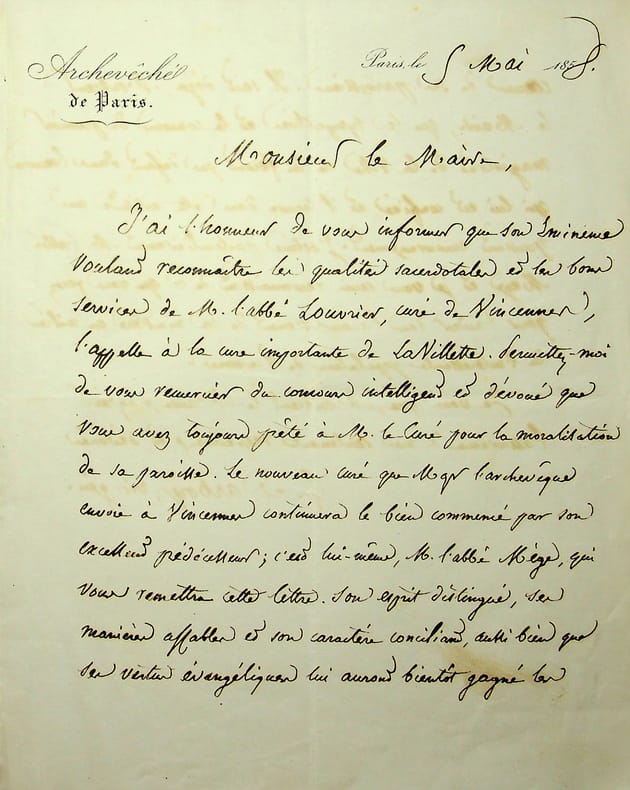 Archevêché
de Paris.
Paris, le 5 Mai 1858.
Monsieur le Maire,
J'ai l'honneur de vous informer que son Eminence
voulant reconnaître les qualités sacerdotales et les bons
services de M. l'abbé Louvrier, curé de Vincennes,
l'appelle à la cure importante de La Villette. Permettez-moi
de vous remercier du concours intelligent et dévoué que
vous avez toujours prêté à M. le Curé pour la moralisation
de sa paroisse. Le nouveau curé que Mgr l'archevêque
envoie à Vincennes continuera le bien commencé par son
excellent prédécesseur ; c'est lui-même, M. l'abbé Mège, qui
vous remettra cette lettre. Son esprit distingué, ses
manières affables et son caractère conciliant, aussi bien que
ses vertus évangéliques lui auront bientôt gagné les